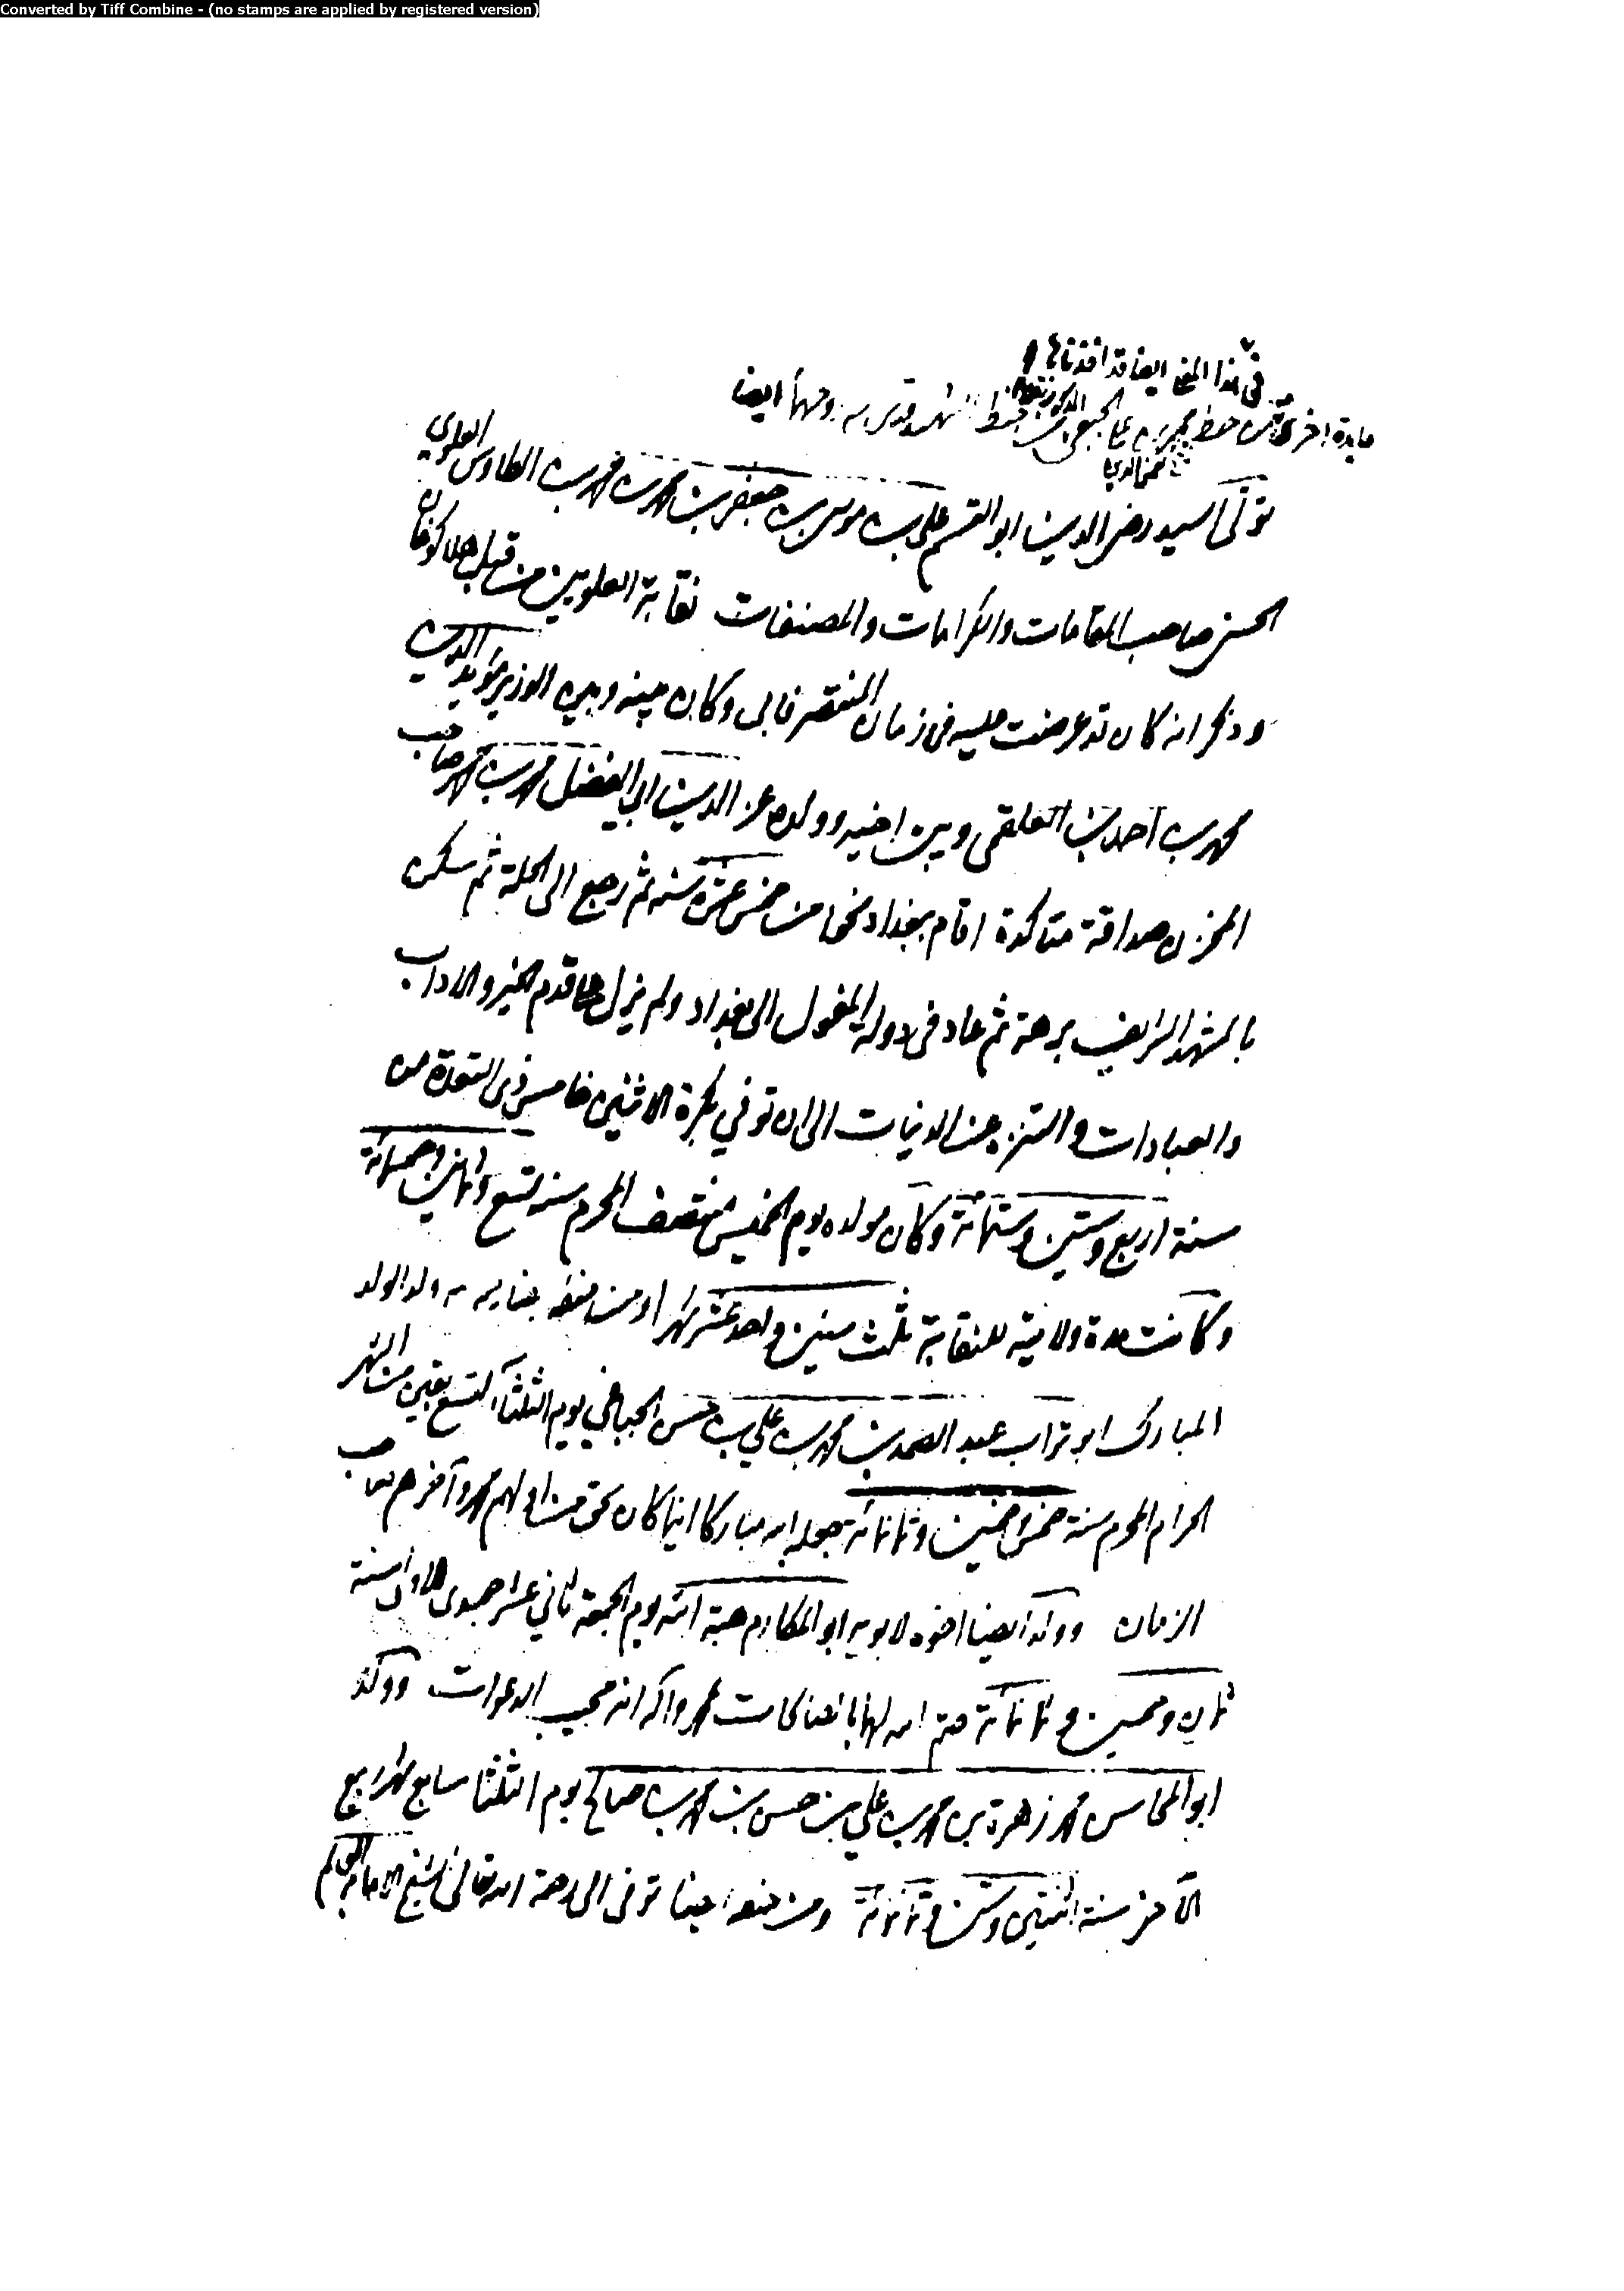 Converted by Tiff Combine - (no stamps are applied by registered version)
في هذا المعنى ايضا قد افدناها
فايدة اخرى من خط محمد بن علي الجبعي من خط الشهيد قدس سره وحهما ايضا
شمس الدين
تولى السيد رضى الدين ابو القسم علي بن موسى بن جعفر بن محمد بن محمد بن الطاوس العلوي
الحسنى صاحب المقامات والكرامات والمصنفات نقابة العلويين من قبل هلاكوخان
وذكر انه كان قد عرضت عليه فى زمان المنتصر فابى وكان بينه وبين الوزير مؤيد الدين
محمد بن احمد بن العلقمى وبين اخيه وولده عز الدين ابى الفضل محمد بن محمد صاحب
المخزن صداقة متاكدة اقام ببغداد نحوا من خمس عشرة سنه ثم رجع الى الحلة ثم سكن
بالمشهد الشريف برهة ثم عاد فى دولة المغول الى بغداد ولم يزل على قدم الخير والاداب
والعبادات والتنزه عن الدنيات الى ان توفي بكرة الاثنين خامس ذى القعدة من
سنة اربع وستين وستمائة وكان مولده يوم الخميس منتصف المحرم سنه تسع وثمانين وخمسمائة
وكانت مدة ولايته للنقابة ثلث سنين واحد عشر شهرا ومن خطه ولد الولد
المبارك ابو تراب عبد الصمد بن محمد بن علي بن حسن الجباعي يوم الثلثاء لتسع بقين من الشهر
الحرام المحرم سنة خمس وخمسين وثمانمائة جعله الله مباركا اينما كان بحق من اولهم محمد وآخرهم صاحب
الزمان وولد ايضا اخوه لابويه ابو المكارم هبة الله يوم الجمعة ثاني عشر جمدى الاولى سنة
ثمان وخمسين وثمانمائة ختم الله لهما بالصالحات بمحمد واله انه مجيب الدعوات وولد
ابو المحاسن محمد زهرة بن محمد بن علي بن حسن بن محمد بن صالح يوم الثلثا سابع شهر ربيع
الآخر سنة اثنتين وستين وثمانمائة ومن خطه ايضا توفى الى رحمة الله تعالى الشيخ الامام العالم